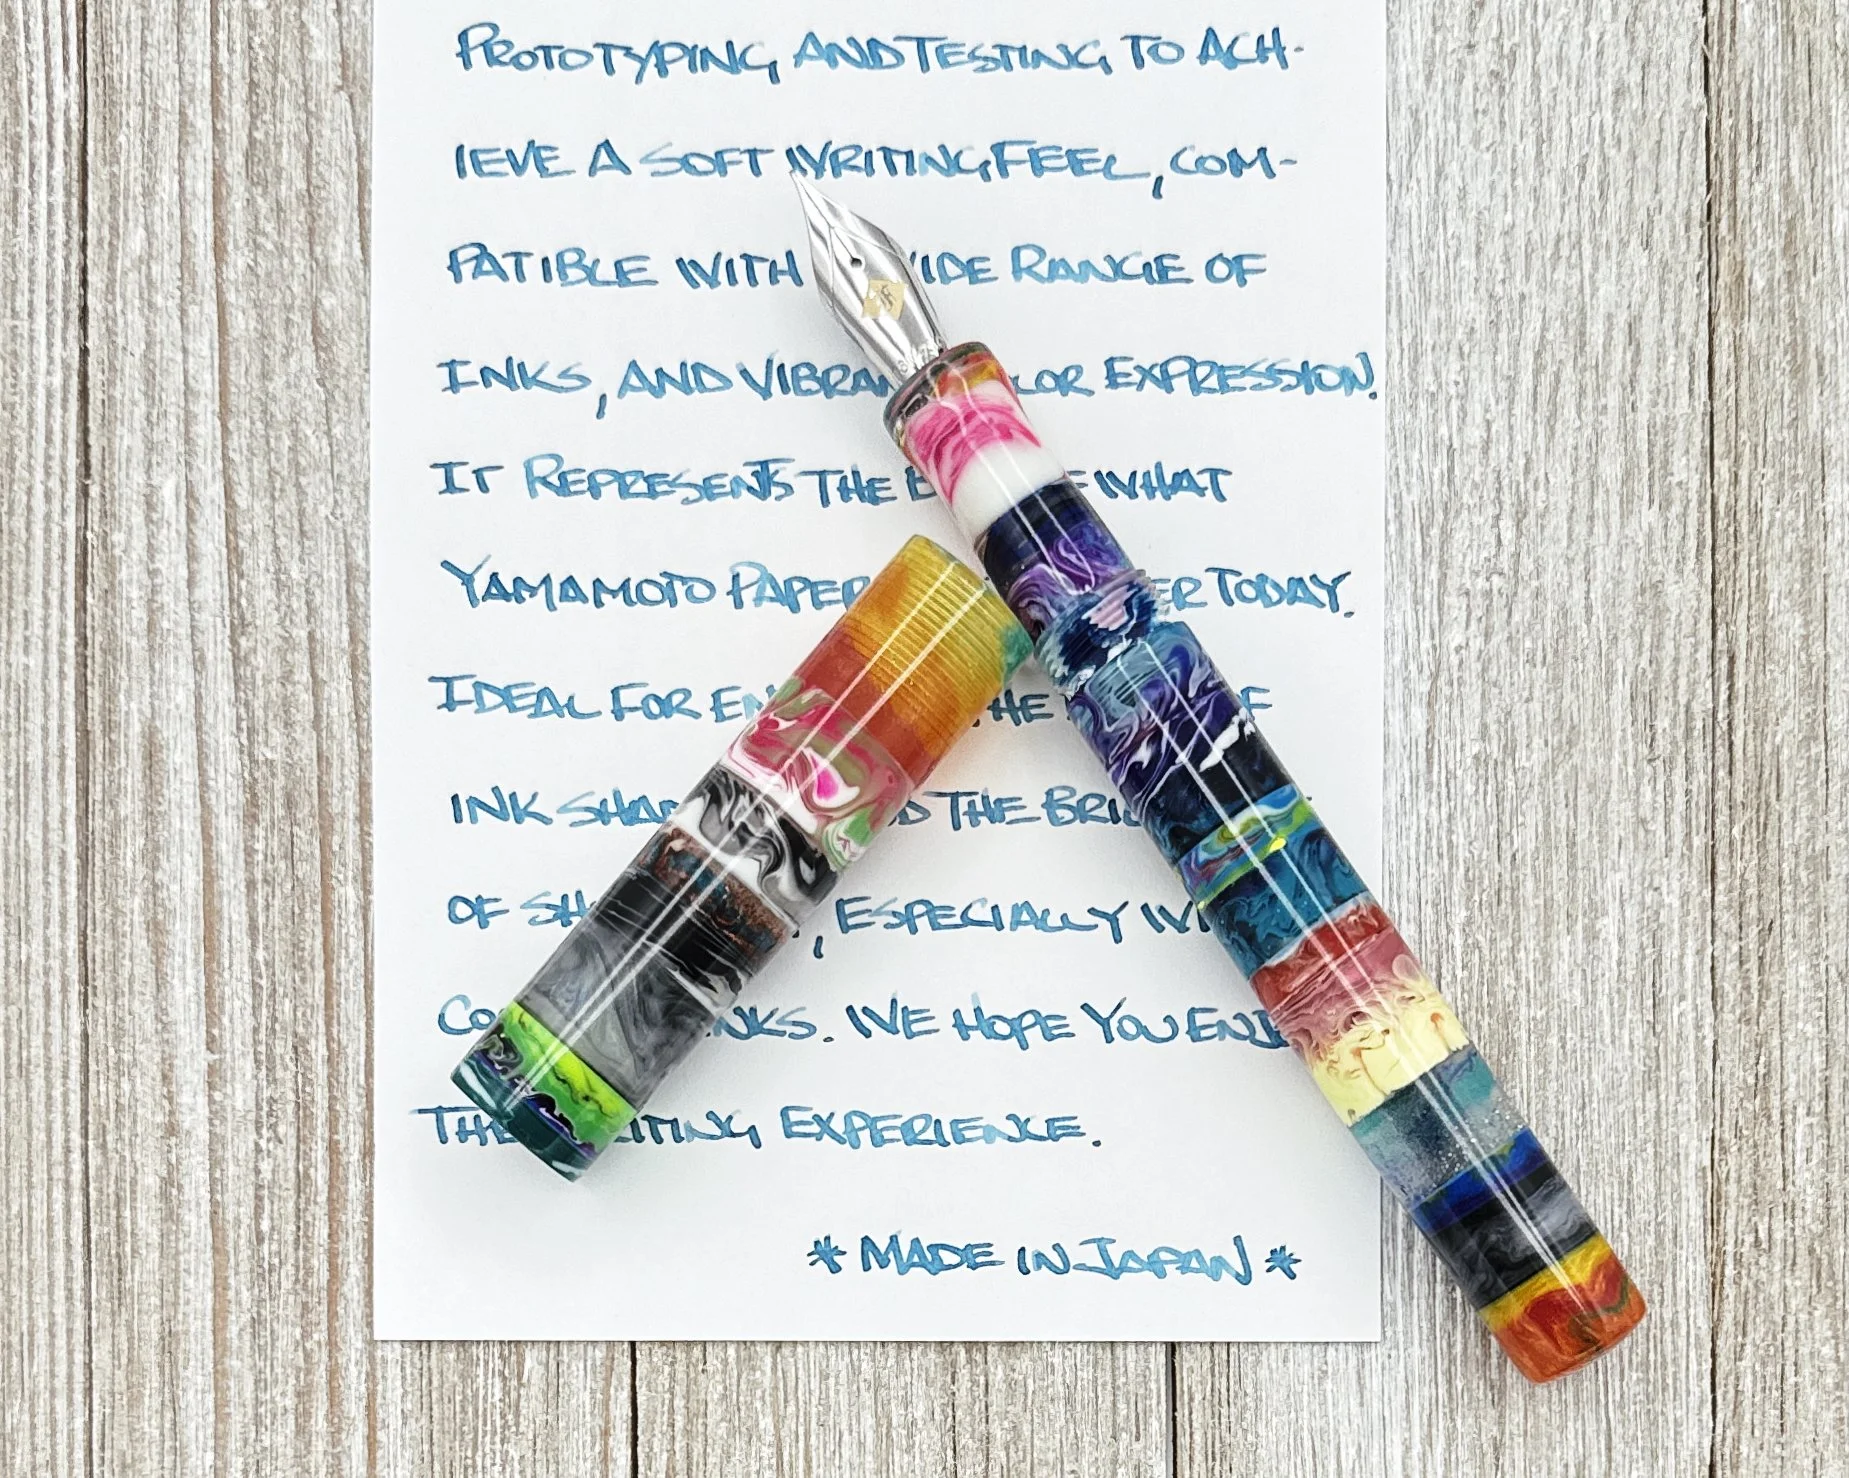 PROTOTYPING AND TESTING TO ACH-
IEVE A SOFT WRITING FEEL, COM-
PATIBLE WITH WIDE RANGE OF
INKS, AND VIBRAN LOR EXPRESSION.
IT REPRESENTS THE WHAT
YAMAMOTO PAPER TODAY.
IDEAL FOR THE
INK THE
OF , ESPECIALLY
INKS. WE HOPE YOU
THE EXPERIENCE.
* MADE IN JAPAN *